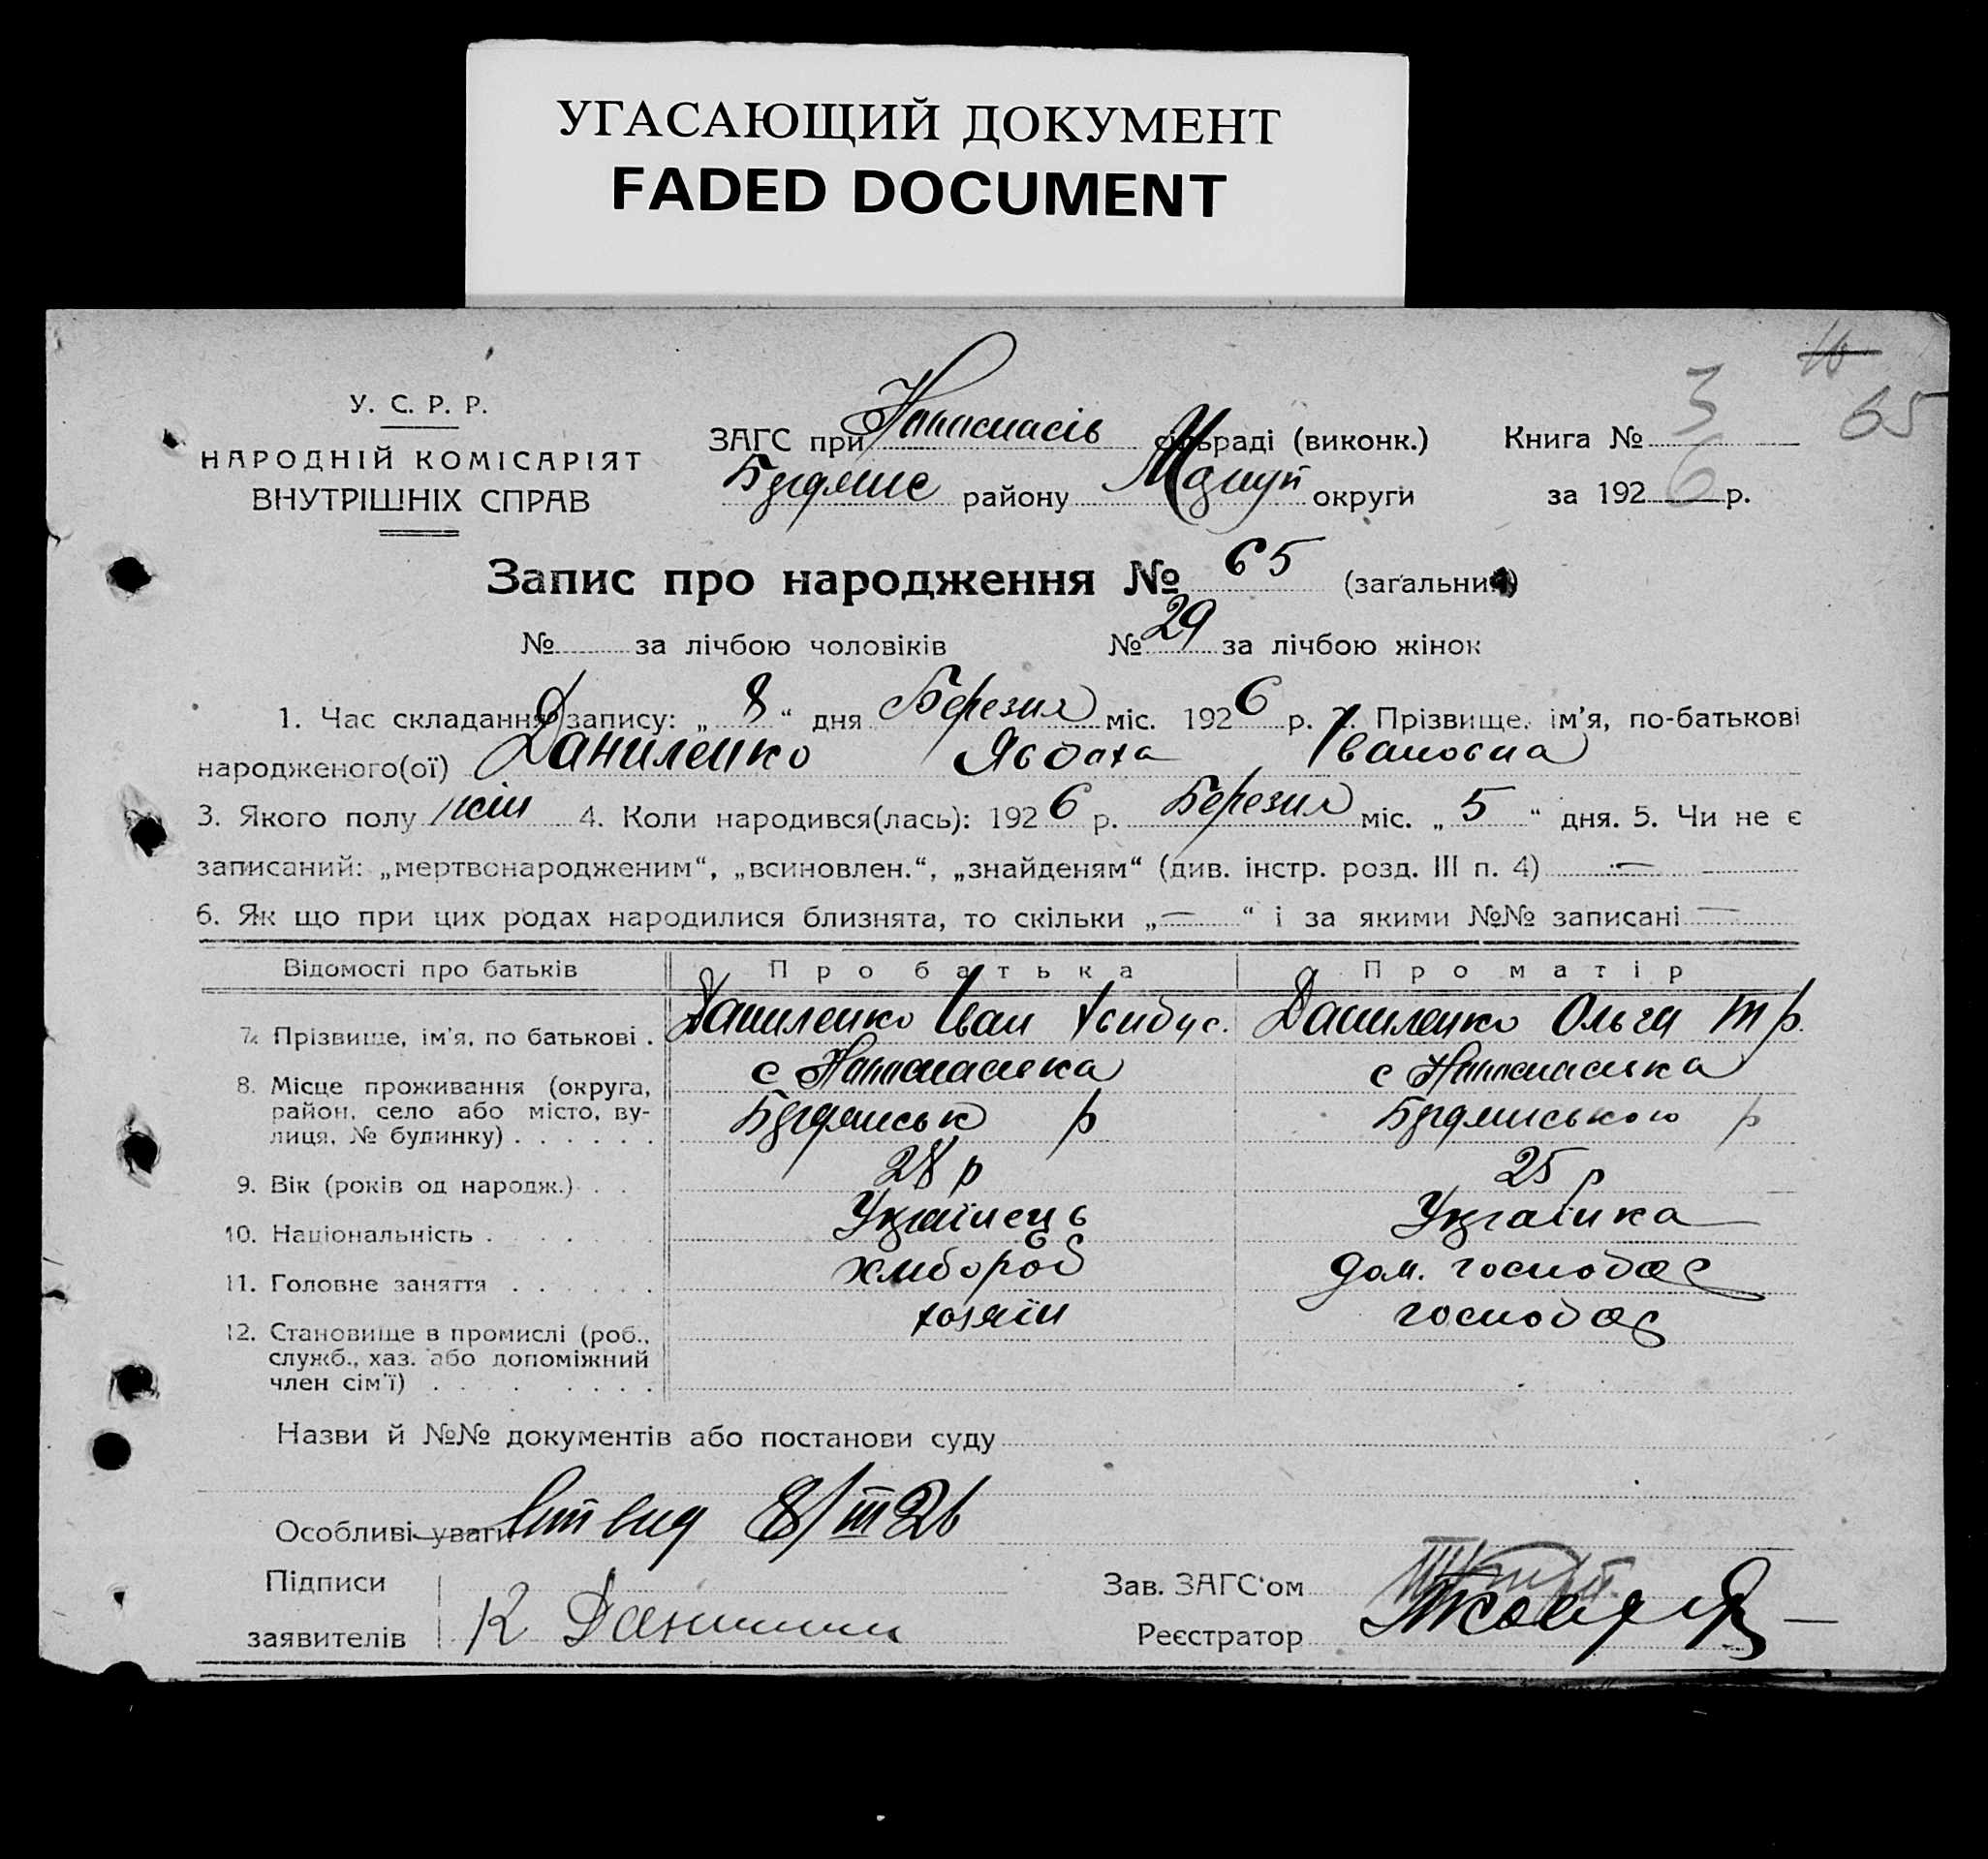 УГАСАЮЩИЙ ДОКУМЕНТ
FADED DOCUMENT
16
65
У. С. Р. Р.
НАРОДНІЙ КОМІСАРІЯТ
ВНУТРІШНІХ СПРАВ
ЗАГС при сільраді (виконк.)
району округи
Книга № 3
за 1926 р.
Запис про народження № 65 (загальний)
№ за лічбою чоловіків № 29 за лічбою жінок
1. Час складання запису: „8“ дня Березня міс. 1926 р. 2. Прізвище, ім’я, по-батькові
народженого(ої) Даниленко Явдоха Івановна
3. Якого полу жін 4. Коли народився(лась): 1926 р. Березня міс. „5“ дня. 5. Чи не є
записаний: „мертвонародженим“, „всиновлен.“, „знайденям“ (див. інстр. розд. III п. 4) —
6. Як що при цих родах народилися близнята, то скільки „—“ і за якими №№ записані —
Відомості про батьків Про батька Про матір
7. Прізвище, ім’я, по батькові . Даниленко Іван Даниленко Ольга Тр.
8. Місце проживання (округа, район, село або місто, вулиця, № будинку) . . . . . . с р с р
9. Вік (років од народж.) . . 28 р 25 р
10. Національність . . . . . . . Українець Українка
11. Головне заняття . . . . . . хлібороб дом. господар
12. Становище в промислі (роб., служб., хаз. або допоміжний член сім’ї) . . . . . . . . хозяїн господар
Назви й №№ документів або постанови суду
Особливі уваги 8/III 26
Підписи
заявителів К
Зав. ЗАГС’ом
Реєстратор